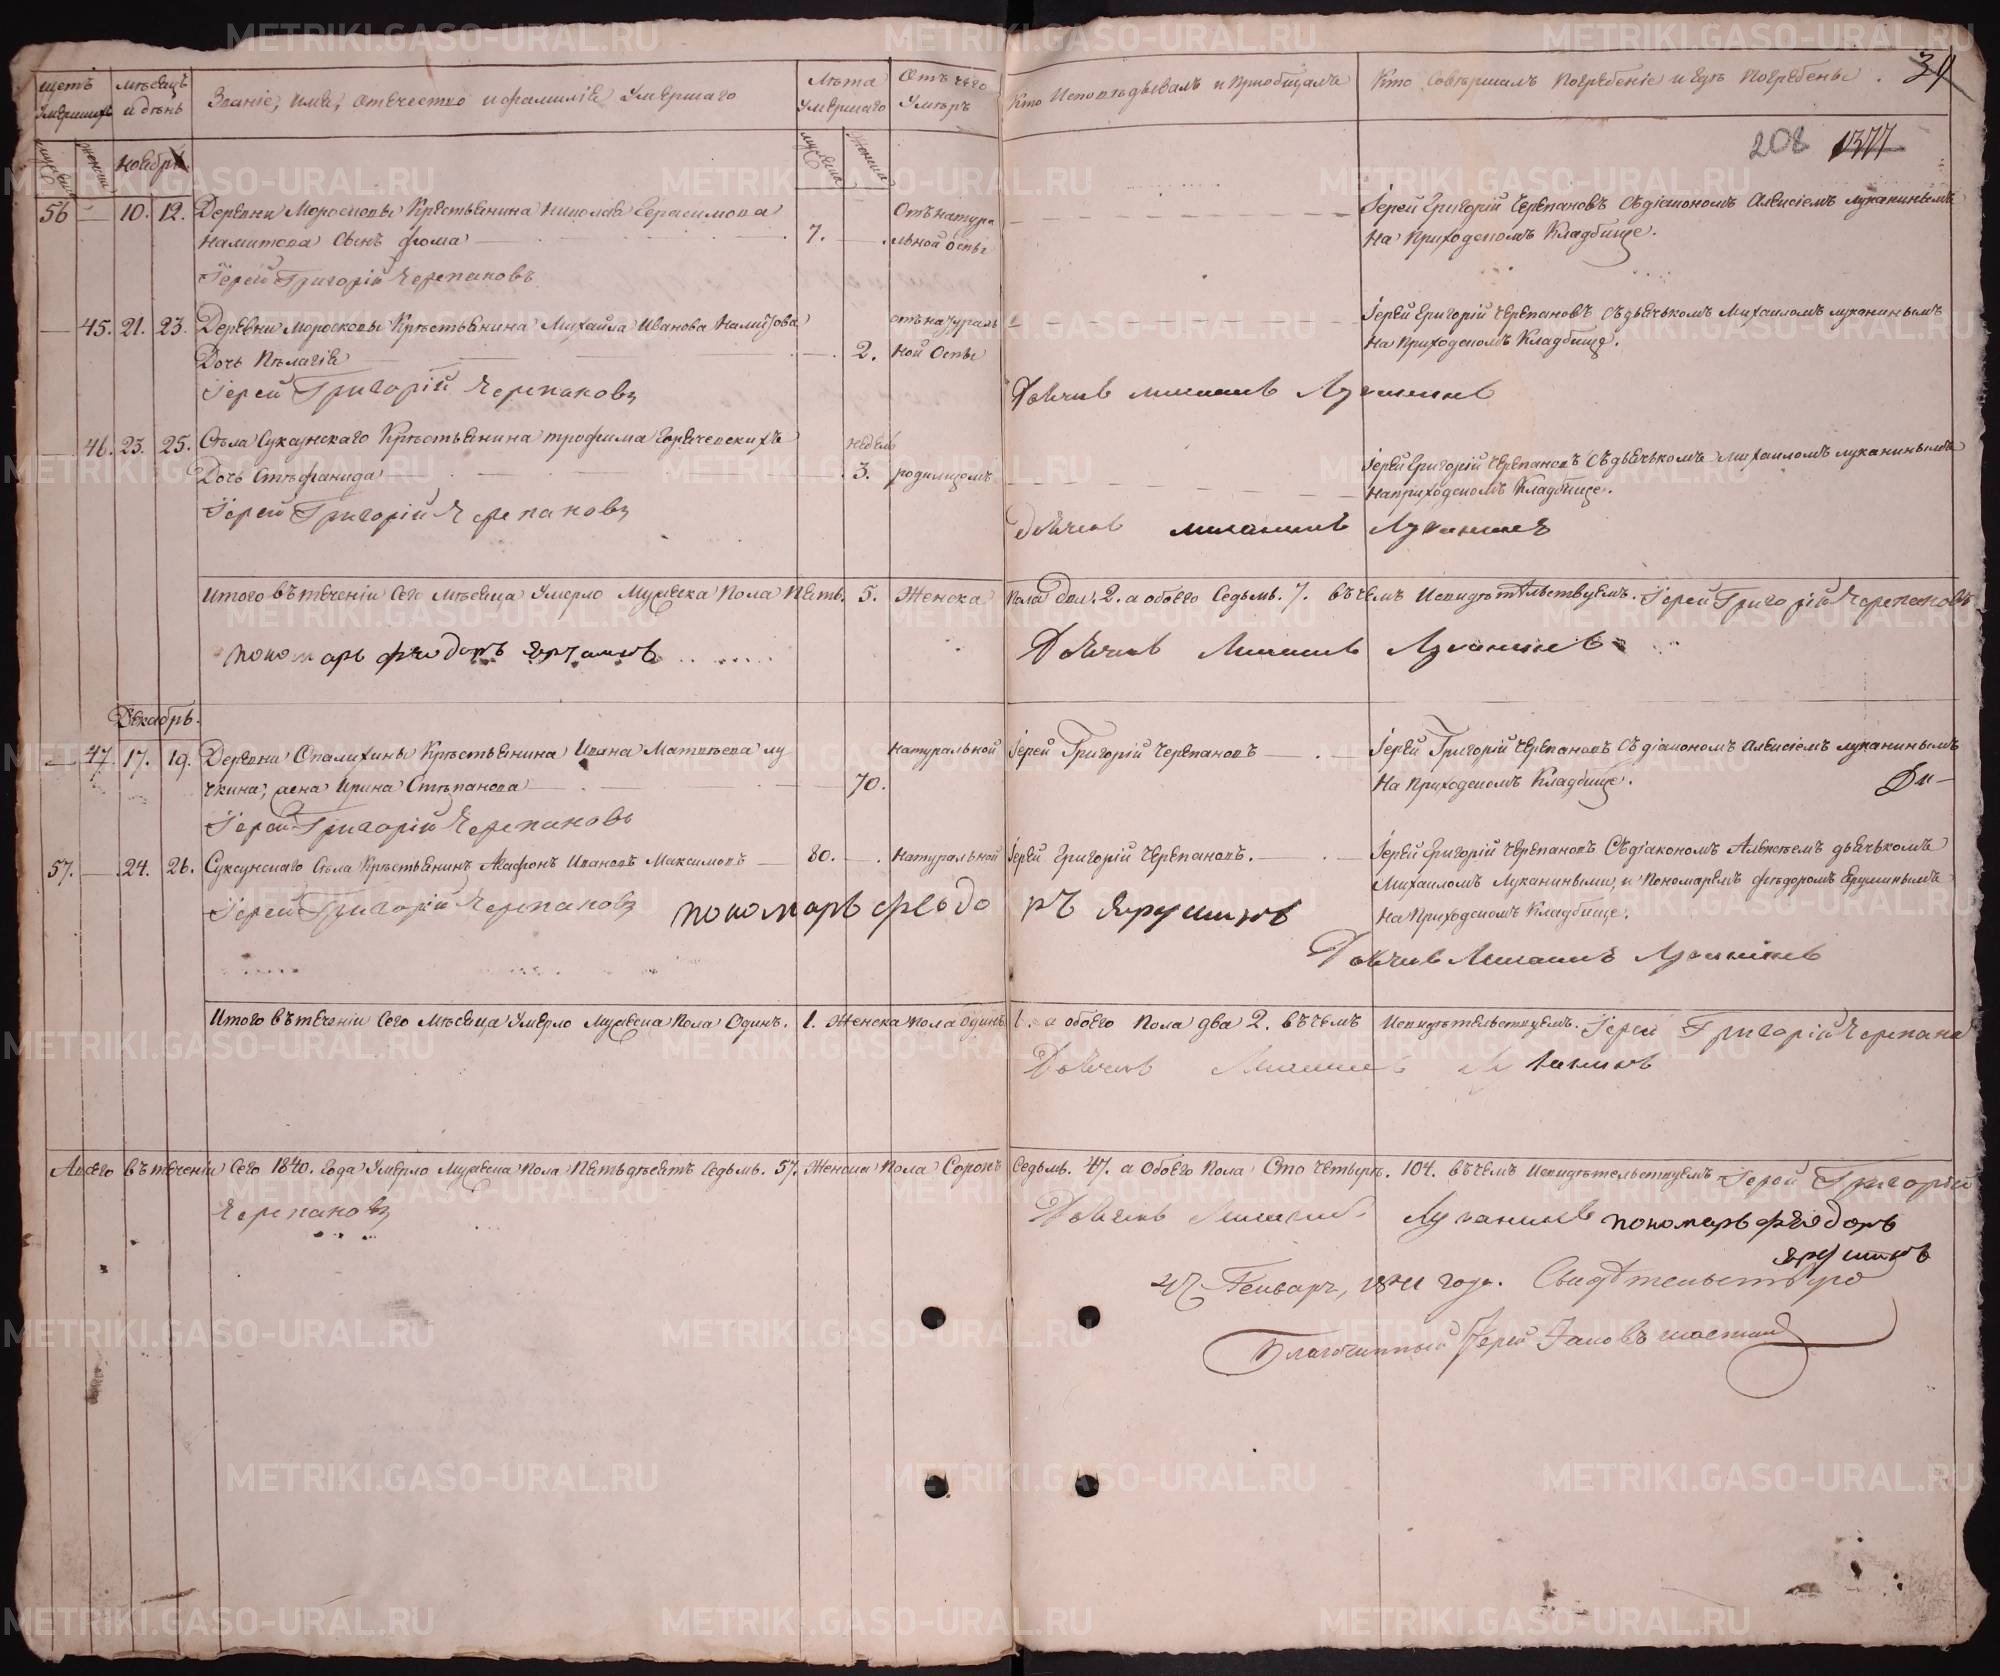 щетъ умершихъ
мѣсяцъ и день
Званіе, имя, отчество и фамилія умершаго
Лѣта умершаго
Отъ чего умеръ
Кто исповѣдывалъ и приобщалъ
Кто совершалъ погребеніе и гдѣ погребены.
208 1377
Ноябрь
56 — 10. 12. Деревни Морозковы крестьянина Николая Герасимова 7. — Отъ натура
сынъ Фома льной оспы
Іерей Григорій Черепановъ съ діакономъ Алексіемъ Луканинымъ
на приходскомъ кладбище.
Іерей Григорій Черепановъ
— 45. 21. 23. Деревни Морозковы крестьянина Михайла Иванова
Дочь Пелагія — 2. отъ натураль
ной оспы
Іерей Григорій Черепановъ съ дьячькомъ Михаиломъ Луканинымъ
на приходскомъ кладбище.
Іерей Григорій Черепановъ
Дьячекъ Михаилъ Луканинъ
— 46. 23. 25. Села Суксунскаго крестьянина Трофима
Дочь Стефанида — недель 3. родимцомъ
Іерей Григорій Черепановъ съ дьячькомъ Михаиломъ Луканинымъ
на приходскомъ кладбище.
Іерей Григорій Черепановъ
Дьячекъ Михаилъ Луканинъ
Итого въ теченіи сего мѣсяца умерло мужеска пола пять. 5. женска пола две. 2. а обоего седмь. 7. въ чемъ и свидѣтельствуемъ. Іерей Григорій Черепановъ
пономарь Феодоръ
Дьячекъ Михаилъ Луканинъ
Декабрь.
— 47. 17. 19. Деревни Опалихины крестьянина Ивана Матвѣева Лу
чкина, жена Ирина Степанова — 70. натуральной
Іерей Григорій Черепановъ
Іерей Григорій Черепановъ съ діакономъ Алексіемъ Луканинымъ
на приходскомъ кладбище.
Іерей Григорій Черепановъ
57. — 24. 26. Суксунскаго села крестьянинъ Агафонъ Ивановъ Максимовъ 80. — натуральной
Іерей Григорій Черепановъ.
Іерей Григорій Черепановъ съ діакономъ Алексѣемъ дьячькомъ
Михаиломъ Луканиными, и пономаремъ Феодоромъ
на приходскомъ кладбище.
Іерей Григорій Черепановъ пономарь Феодоръ
Дьячекъ Михаилъ Луканинъ
Итого въ теченіи сего мѣсяца умерло мужеска пола одинъ. 1. женска пола одинъ 1. а обоего пола два 2. въ чемъ и свидѣтельствуемъ. Іерей Григорій Черепано
Дьячекъ Михаилъ Луканинъ
А всего въ теченіи сего 1840. года умерло мужеска пола пятьдесятъ седмь. 57. женска пола сорокъ седмь. 47. а обоего пола сто четыре. 104. въ чемъ и свидѣтельствуемъ Іерей Григорій
Черепановъ
Дьячекъ Михаилъ Луканинъ пономарь Феодоръ
Генваря, 1841 года. Свидѣтельствую
Благочинный Іерей Іаковъ
METRIKI.GASO-URAL.RU